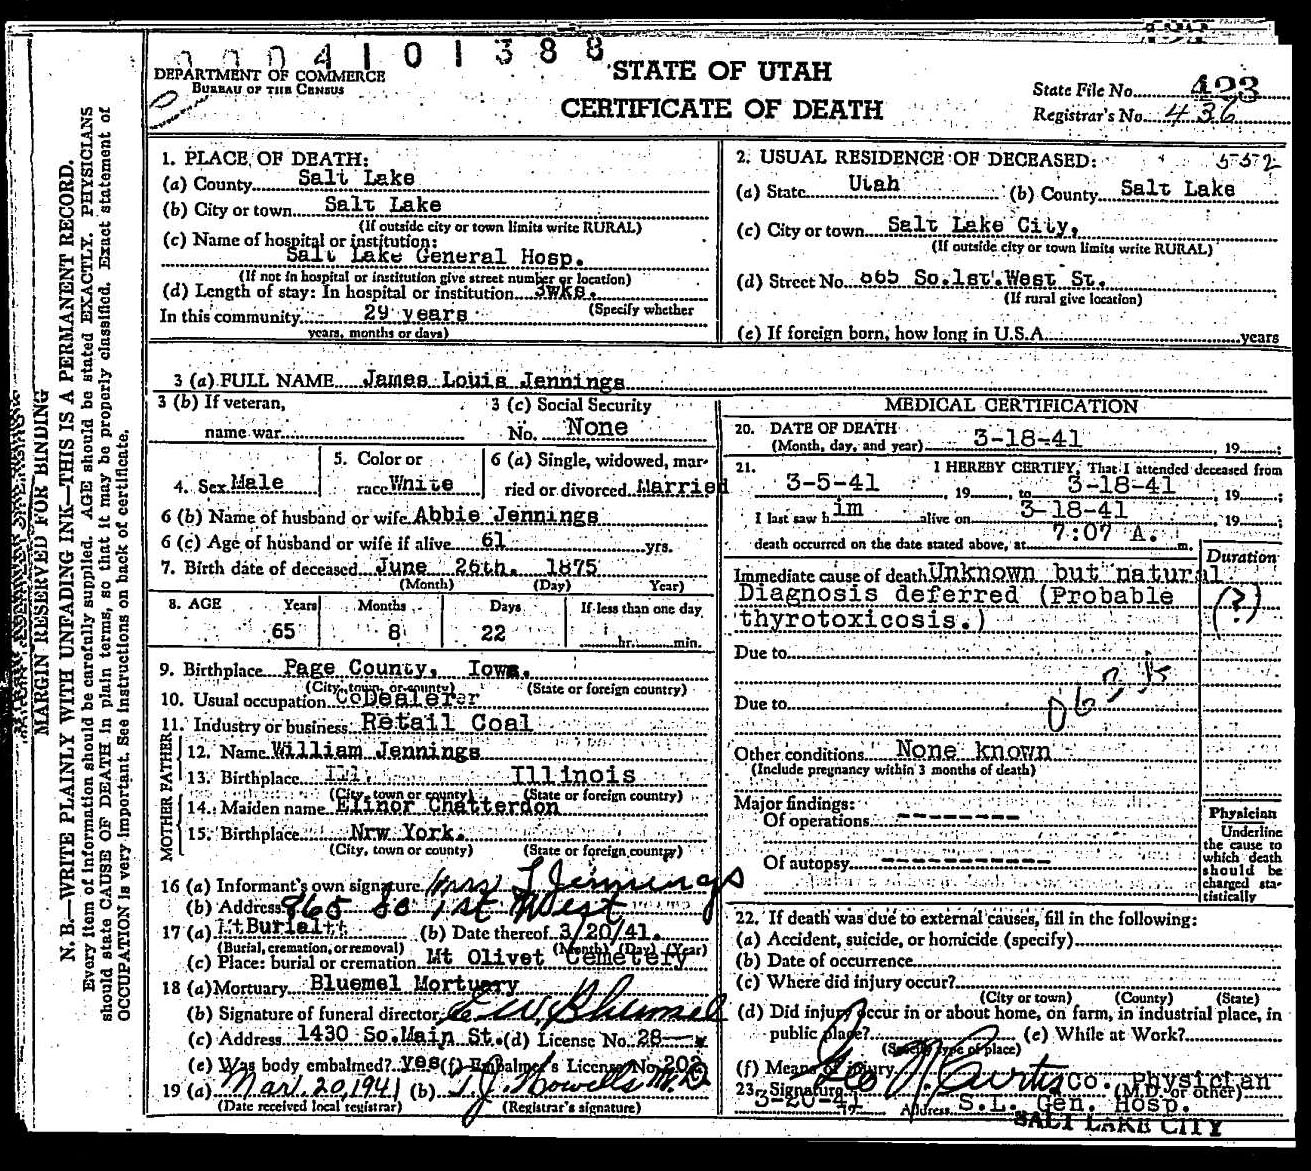 0004101388
DEPARTMENT OF COMMERCE
BUREAU OF THE CENSUS
STATE OF UTAH
CERTIFICATE OF DEATH
State File No. 423
Registrar's No. 436
MARGIN RESERVED FOR BINDING
N. B.—WRITE PLAINLY WITH UNFADING INK—THIS IS A PERMANENT RECORD.
Every item of information should be carefully supplied. AGE should be stated EXACTLY. PHYSICIANS
should state CAUSE OF DEATH in plain terms, so that it may be properly classified. Exact statement of
OCCUPATION is very important. See instructions on back of certificate.
1. PLACE OF DEATH:
(a) County Salt Lake
(b) City or town Salt Lake
(If outside city or town limits write RURAL)
(c) Name of hospital or institution:
Salt Lake General Hosp.
(If not in hospital or institution give street number or location)
(d) Length of stay: In hospital or institution 3wks.
(Specify whether
In this community 29 years
years, months or days)
2. USUAL RESIDENCE OF DECEASED: 5372
(a) State Utah (b) County Salt Lake
(c) City or town Salt Lake City,
(If outside city or town limits write RURAL)
(d) Street No. 865 So.1st.West St.
(If rural give location)
(e) If foreign born, how long in U.S.A. years
3 (a) FULL NAME James Louis Jennings
3 (b) If veteran, name war
3 (c) Social Security No. None
4. Sex Male
5. Color or race White
6 (a) Single, widowed, married or divorced Married
6 (b) Name of husband or wife Abbie Jennings
6 (c) Age of husband or wife if alive 61 yrs.
7. Birth date of deceased June 26th. 1875
(Month) (Day) Year)
8. AGE Years Months Days If less than one day
65 8 22 hr. min.
9. Birthplace Page County, Iowa.
(City, town, or county) (State or foreign country)
10. Usual occupation Dealer
11. Industry or business Retail Coal
FATHER
12. Name William Jennings
13. Birthplace Illinois
(City, town or county) (State or foreign country)
MOTHER
14. Maiden name Elinor Chatterdon
15. Birthplace Nrw York.
(City, town or county) (State or foreign county)
16 (a) Informant's own signature Mrs L Jennings
(b) Address 865 So 1st West
17 (a) Burial (b) Date thereof 3/20/41.
(Burial, cremation, or removal) (Month) (Day) (Year)
(c) Place: burial or cremation Mt Olivet Cemetery
18 (a) Mortuary Bluemel Mortuary
(b) Signature of funeral director W. Bluemel
(c) Address 1430 So.Main St. (d) License No. 28
(e) Was body embalmed? yes (f) Embalmer's License No. 202
19 (a) Mar. 20, 1941 (b) T.J. Howells M.D
(Date received local registrar) (Registrar's signature)
MEDICAL CERTIFICATION
20. DATE OF DEATH
(Month, day, and year) 3-18-41, 19 ;
21. I HEREBY CERTIFY, That I attended deceased from
3-5-41, 19 to 3-18-41, 19 ;
I last saw him alive on 3-18-41, 19 ;
death occurred on the date stated above, at 7:07 A. m.
Duration
Immediate cause of death Unknown but natural
Diagnosis deferred (Probable
thyrotoxicosis.)
(?)
Due to
Due to
Other conditions None known
(Include pregnancy within 3 months of death)
Major findings:
Of operations --------
Of autopsy -----------
Physician
Underline
the cause to
which death
should be
charged sta-
tistically
22. If death was due to external causes, fill in the following:
(a) Accident, suicide, or homicide (specify)
(b) Date of occurrence
(c) Where did injury occur?
(City or town) (County) (State)
(d) Did injury occur in or about home, on farm, in industrial place, in
public place? (e) While at Work?
(Specify type of place)
(f) Means of injury
23. Signature Geo N. Curtis Co. Physician
(M.D. or other)
3-20-41 Address S.L. Gen. Hosp.
SALT LAKE CITY